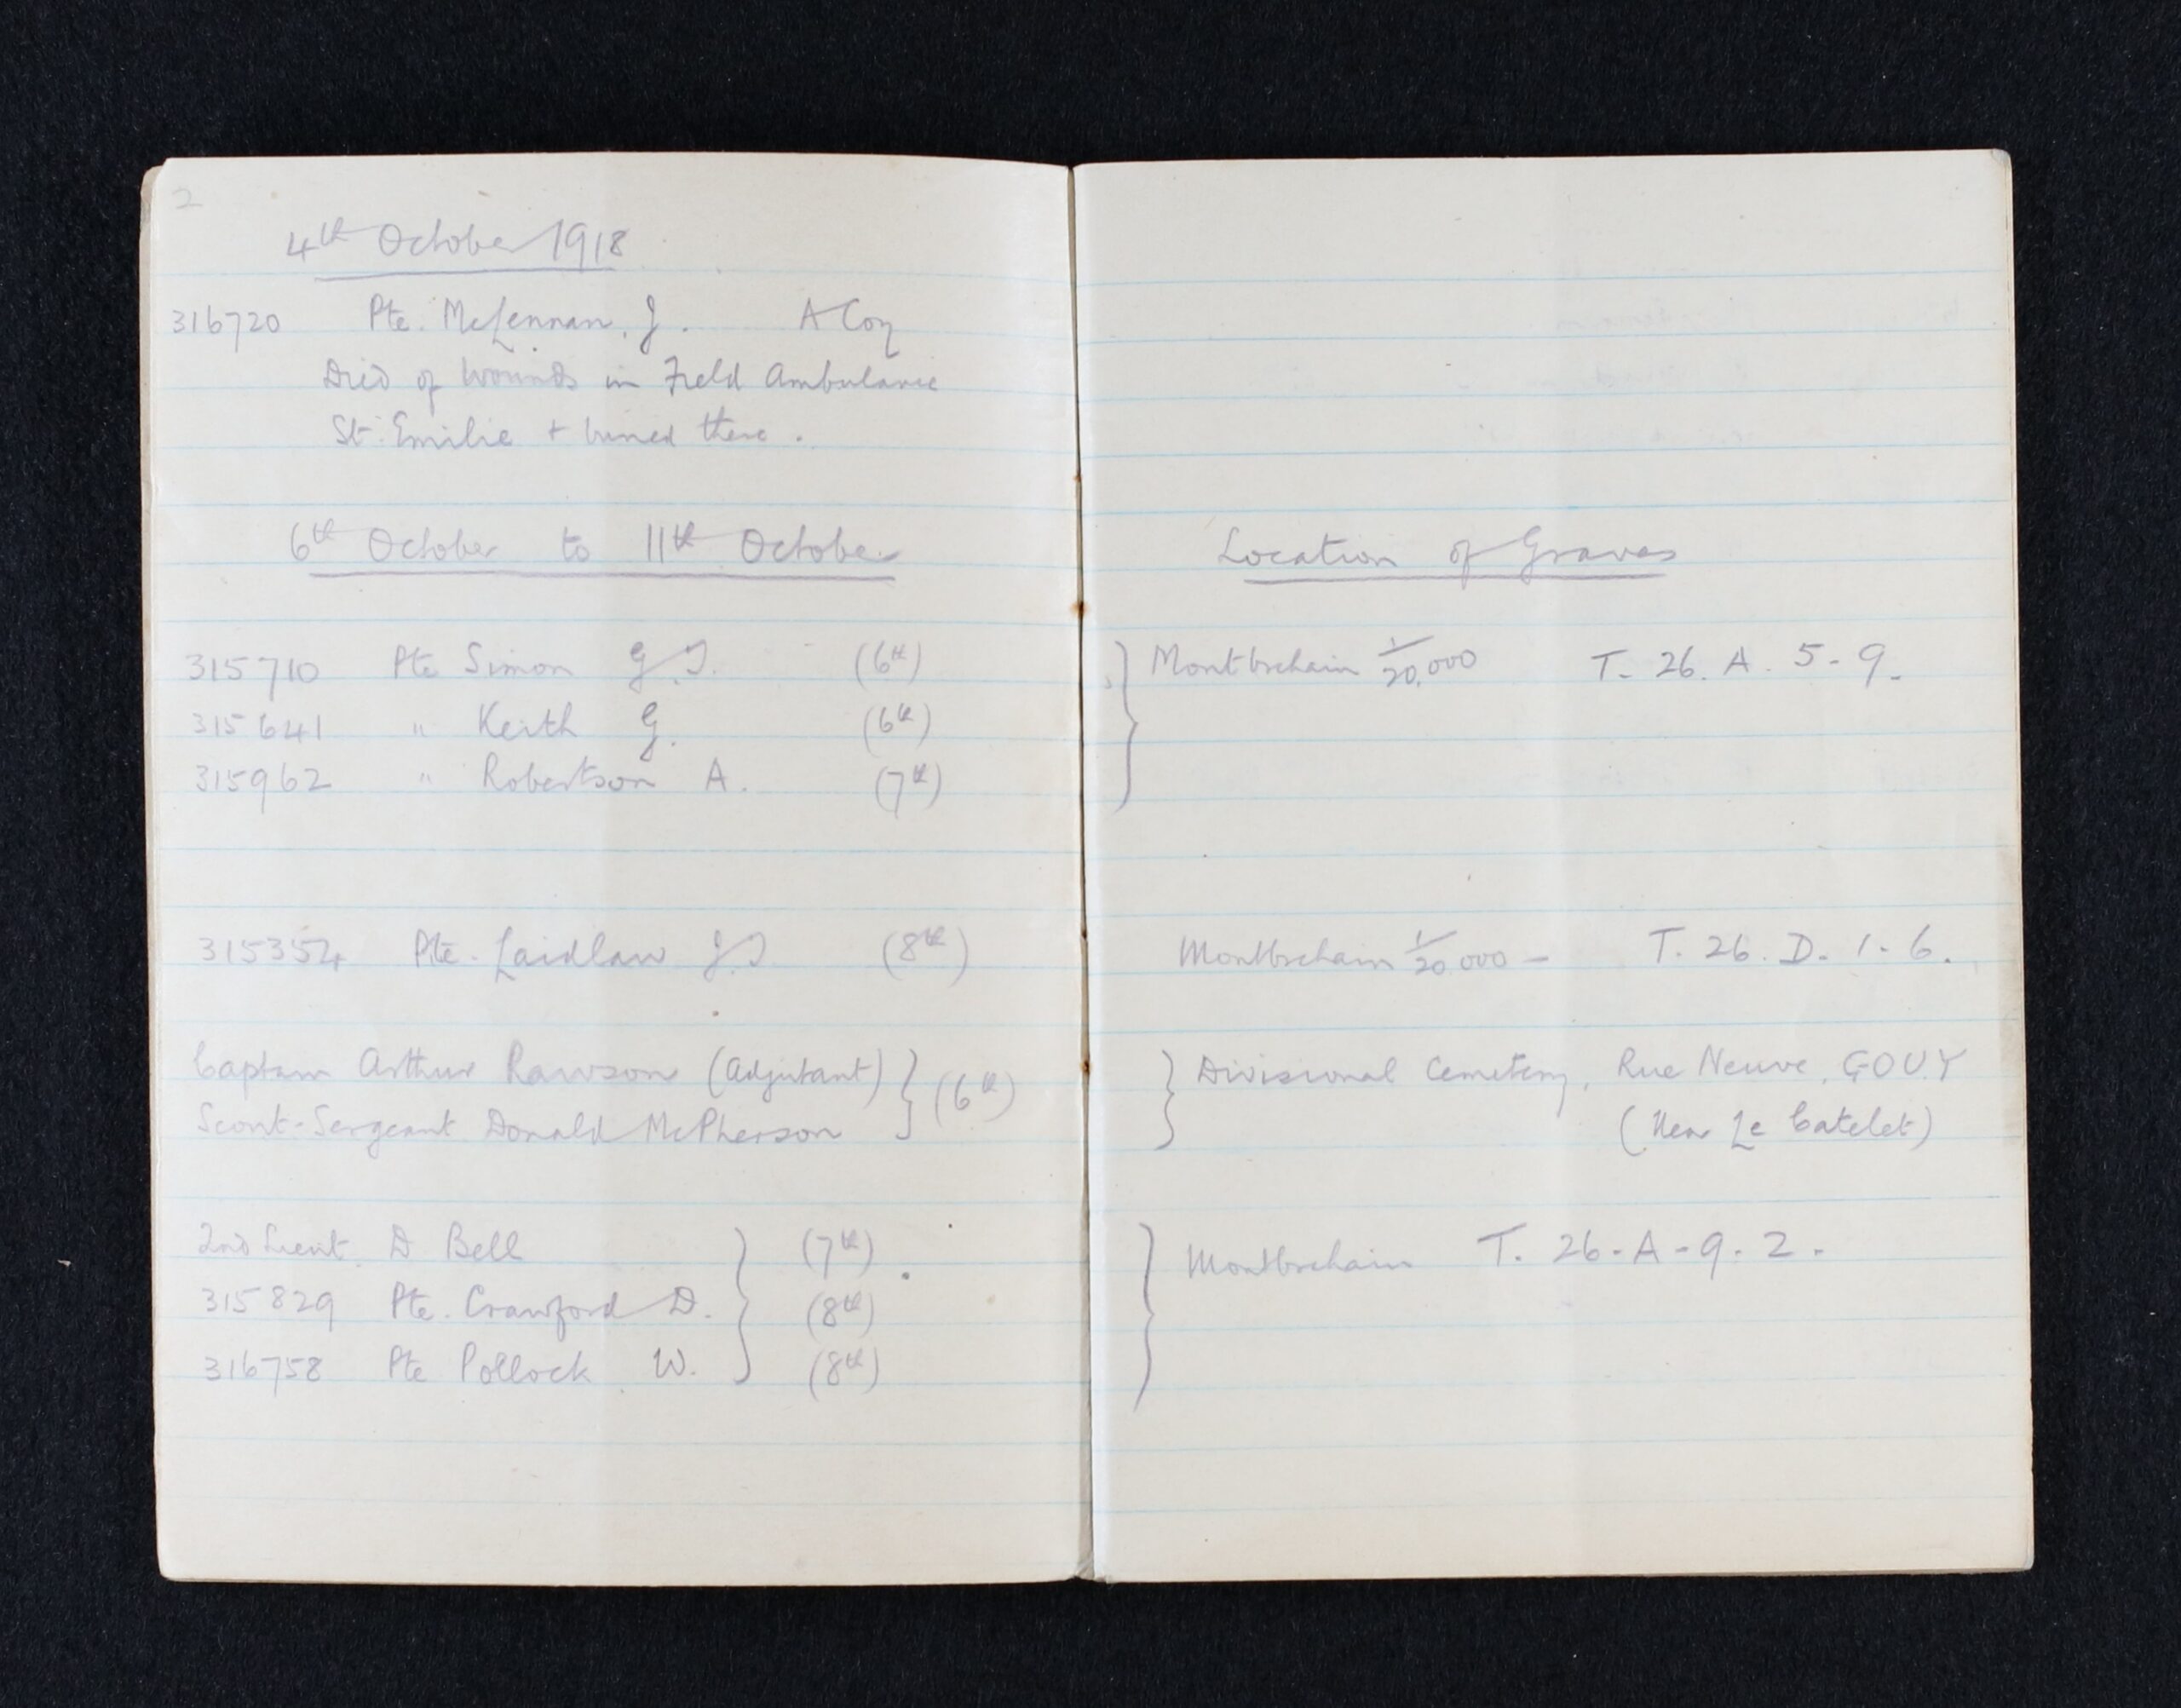 2
4th October 1918
316720 Pte. McLennan. J. A Coy
Died of Wounds in Field Ambulance
St. Emilie + buried there.
6th October to 11th October
315710 Pte Simon G.I. (6th)
315641 " Keith G. (6th)
315962 " Robertson A. (7th)
315354 Pte. Laidlaw J.I (8th)
Captain Arthur Rawson (Adjutant) } (6th)
Scout-Sergeant Donald McPherson
2nd Lieut. D Bell } (7th)
315829 Pte. Crawford D. (8th)
316758 Pte Pollock W. (8th)
Location of Graves
} Montbrehain 1/20,000 T. 26. A. 5-9.
Montbrehain 1/20,000 - T. 26. D. 1-6.
} Divisional Cemetery, Rue Neuve, GOUY
(Near Le Catelet)
} Montbrehain T. 26-A-9.2.